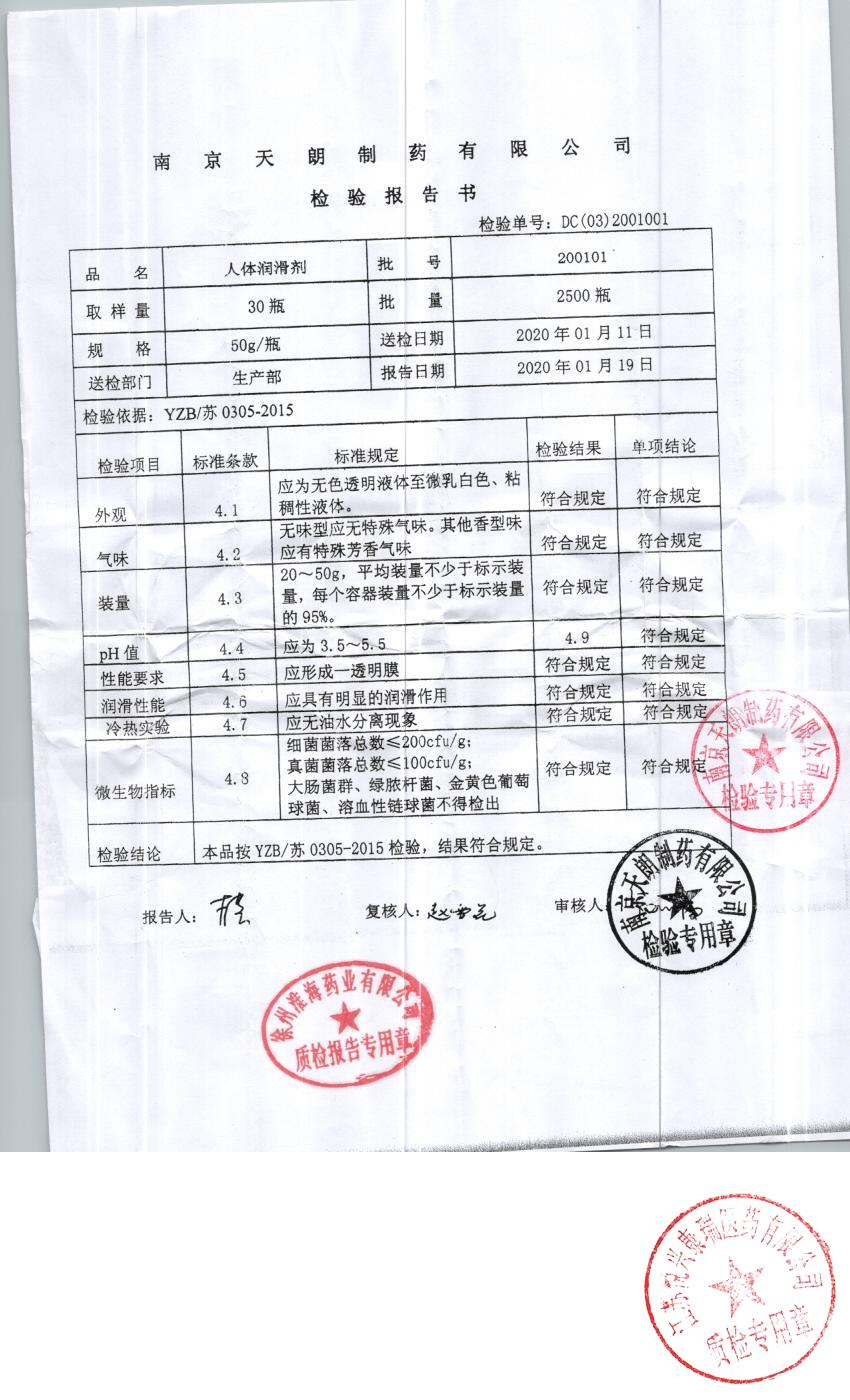 南京天朗制药有限公司
检验报告书
检验单号：DC(03)2001001
品名 人体润滑剂 批号 200101
取样量 30瓶 批量 2500瓶
规格 50g/瓶 送检日期 2020年01月11日
送检部门 生产部 报告日期 2020年01月19日
检验依据：YZB/苏0305-2015
检验项目 标准条款 标准规定 检验结果 单项结论
外观 4.1 应为无色透明液体至微乳白色、粘
稠性液体。 符合规定 符合规定
气味 4.2 无味型应无特殊气味。其他香型味
应有特殊芳香气味 符合规定 符合规定
装量 4.3 20～50g，平均装量不少于标示装
量，每个容器装量不少于标示装量
的95%。 符合规定 符合规定
pH值 4.4 应为3.5～5.5 4.9 符合规定
性能要求 4.5 应形成一透明膜 符合规定 符合规定
润滑性能 4.6 应具有明显的润滑作用 符合规定 符合规定
冷热实验 4.7 应无油水分离现象 符合规定 符合规定
微生物指标 4.8 细菌菌落总数≤200cfu/g;
真菌菌落总数≤100cfu/g;
大肠菌群、绿脓杆菌、金黄色葡萄
球菌、溶血性链球菌不得检出 符合规定 符合规定
检验结论 本品按YZB/苏0305-2015检验，结果符合规定。
报告人： 复核人： 审核人
南京天朗制药有限公司
检验专用章
南京天朗制药有限公司
检验专用章
徐州淮海药业有限公司
质检报告专用章
江苏 兴康瑞医药有限公司
质检专用章